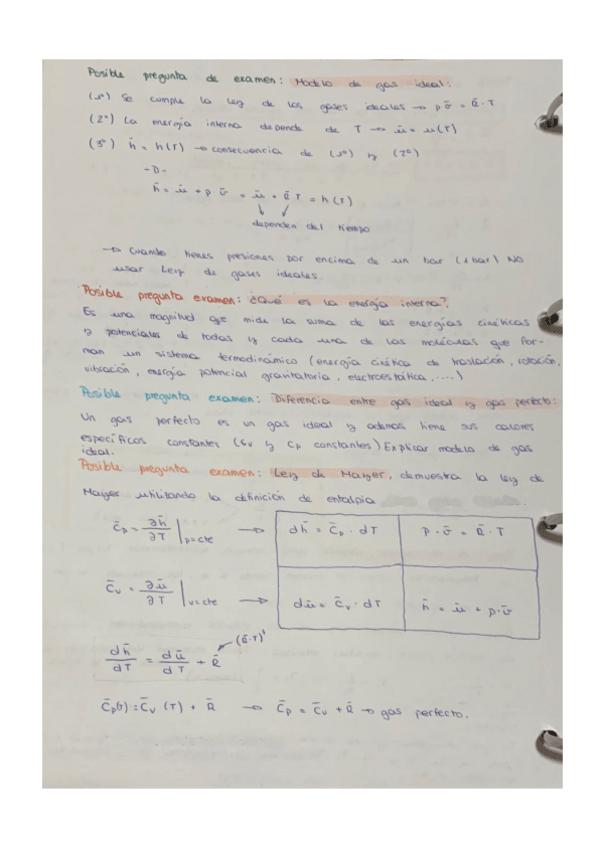 Posible pregunta de examen: Modelo de gas ideal:
(1º) Se cumple la ley de los gases ideales → p ῡ = R̄ · T
(2º) La energía interna depende de T → ū = u(T)
(3º) h̄ = h(T) → consecuencia de (1º) y (2º)
-D-
h̄ = ū + p ῡ = ū + R̄ T = h(T)
dependen del tiempo
→ Cuando tienes presiones por encima de un bar (1 bar) NO
usar Ley de gases ideales.
Posible pregunta examen: ¿Qué es la energía interna?
Es una magnitud que mide la suma de las energías cinéticas
y potenciales de todas y cada una de las moléculas que for-
man un sistema termodinámico (energía cinética de traslación, rotación,
vibración, energía potencial gravitatoria, electroestática, ....)
Posible pregunta examen: Diferencia entre gas ideal y gas perfecto:
Un gas perfecto es un gas ideal y además tiene sus calores
específicos constantes (Cv y Cp constantes) Explicar modelo de gas
ideal.
Posible pregunta examen: Ley de Mayer, demuestra la ley de
Mayer utilizando la definición de entalpía
C̄p = ∂h̄/∂T |p=cte → dh̄ = C̄p · dT P · ῡ = R̄ · T
C̄v = ∂ū/∂T |v=cte → dū = C̄v · dT h̄ = ū + p·ῡ
(R̄·T)'
dh̄/dT = dū/dT + R̄
C̄p(T) = C̄v (T) + R̄ → C̄p = C̄v + R̄ → gas perfecto.